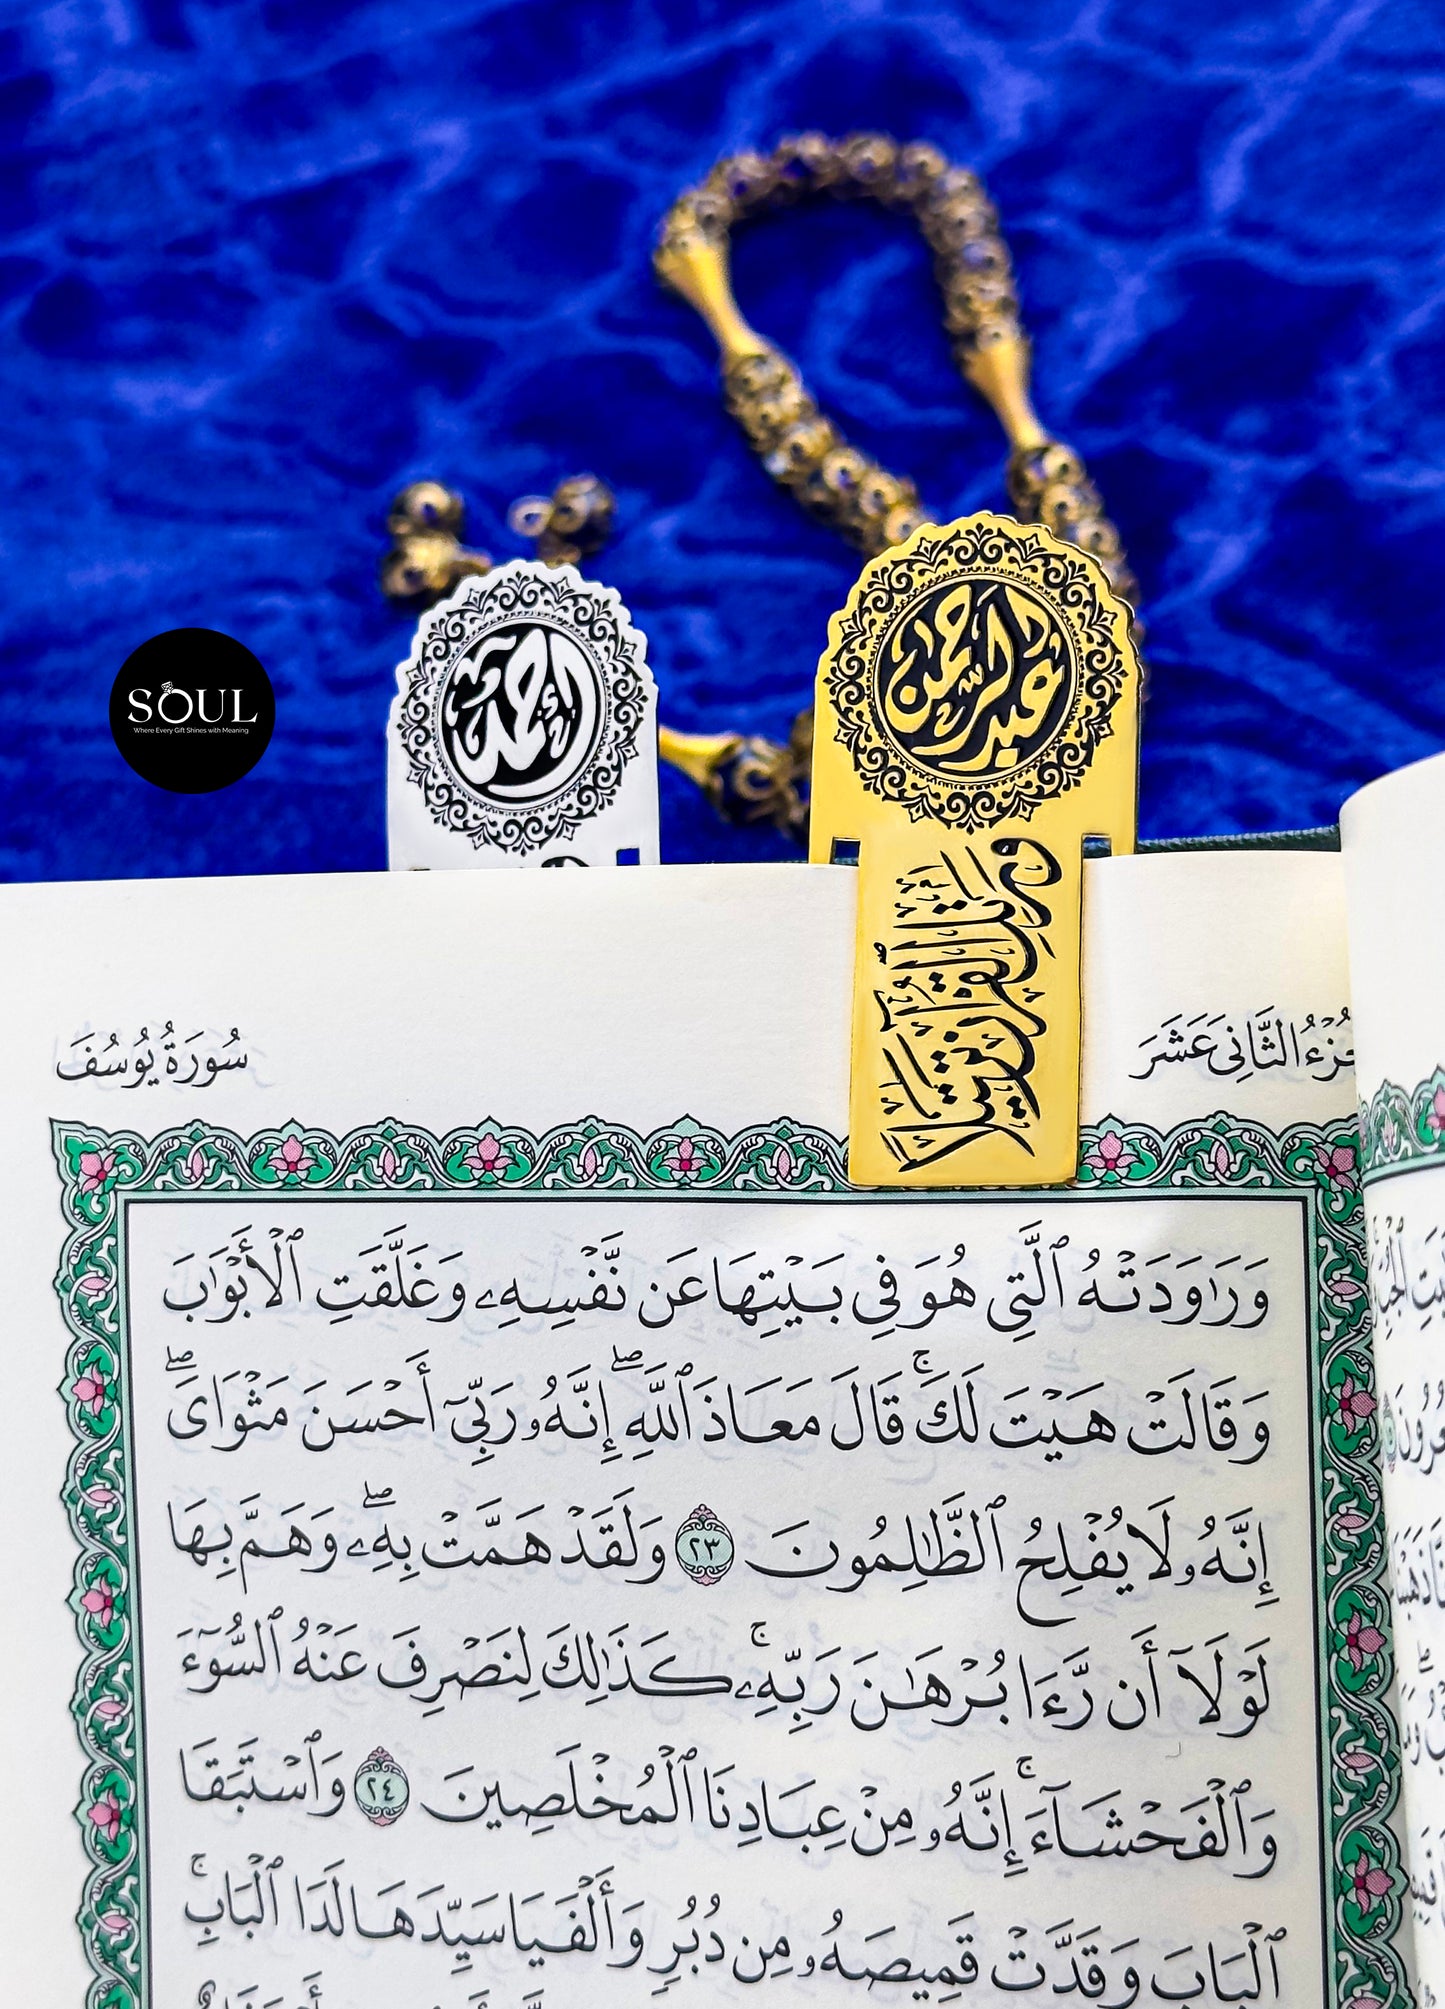 SOUL
Where Every Gift Shines with Meaning
أحمد
عبد الرحمن
ورتل القرآن ترتيلا
سُورَةُ يُوسُفَ
الجُزْءُ الثَّانِي عَشَرَ
وَرَٰوَدَتْهُ ٱلَّتِى هُوَ فِى بَيْتِهَا عَن نَّفْسِهِۦ وَغَلَّقَتِ ٱلْأَبْوَٰبَ
وَقَالَتْ هَيْتَ لَكَۚ قَالَ مَعَاذَ ٱللَّهِۖ إِنَّهُۥ رَبِّىٓ أَحْسَنَ مَثْوَاىَۖ
إِنَّهُۥ لَا يُفْلِحُ ٱلظَّٰلِمُونَ ٢٣ وَلَقَدْ هَمَّتْ بِهِۦۖ وَهَمَّ بِهَا
لَوْلَآ أَن رَّءَا بُرْهَٰنَ رَبِّهِۦۚ كَذَٰلِكَ لِنَصْرِفَ عَنْهُ ٱلسُّوٓءَ
وَٱلْفَحْشَآءَۚ إِنَّهُۥ مِنْ عِبَادِنَا ٱلْمُخْلَصِينَ ٢٤ وَٱسْتَبَقَا
ٱلْبَابَ وَقَدَّتْ قَمِيصَهُۥ مِن دُبُرٍ وَأَلْفَيَا سَيِّدَهَا لَدَا ٱلْبَابِۚ